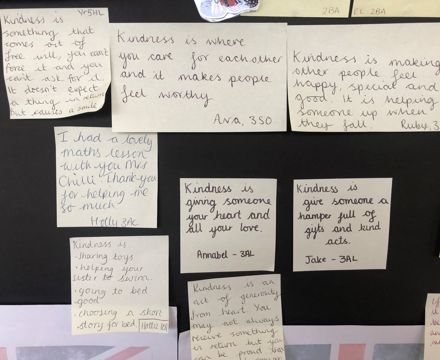 2BA
EL 2BA
Yr5HL
Kindness is
something that
comes out of
free will, you can't
force it and you
can't ask for it.
It doesn't expect
a thing in return
but causes a smile
Kindness is where
you care for eachother
and it makes people
feel worthy
Ava, 3SO
Kindness is making
other people feel
happy, special and
good. It is helping
someone up when
they fall. Ruby, 3
I had a lovely
maths lesson
with you Mrs
Chilli thank you
for helping me
so much
Holly 3AL
Kindness is
giving someone
your heart and
all your love.
Annabel - 3AL
Kindness is
give someone a
hamper full of
gifts and kind
acts.
Jake - 3AL
Kindness is
- sharing toys
- helping your
sister to swim.
- going to bed
good
- choosing a short
story for bed
Kindness is an
act of generosity
from heart You
may not always
receive something
in return but you
can be proud